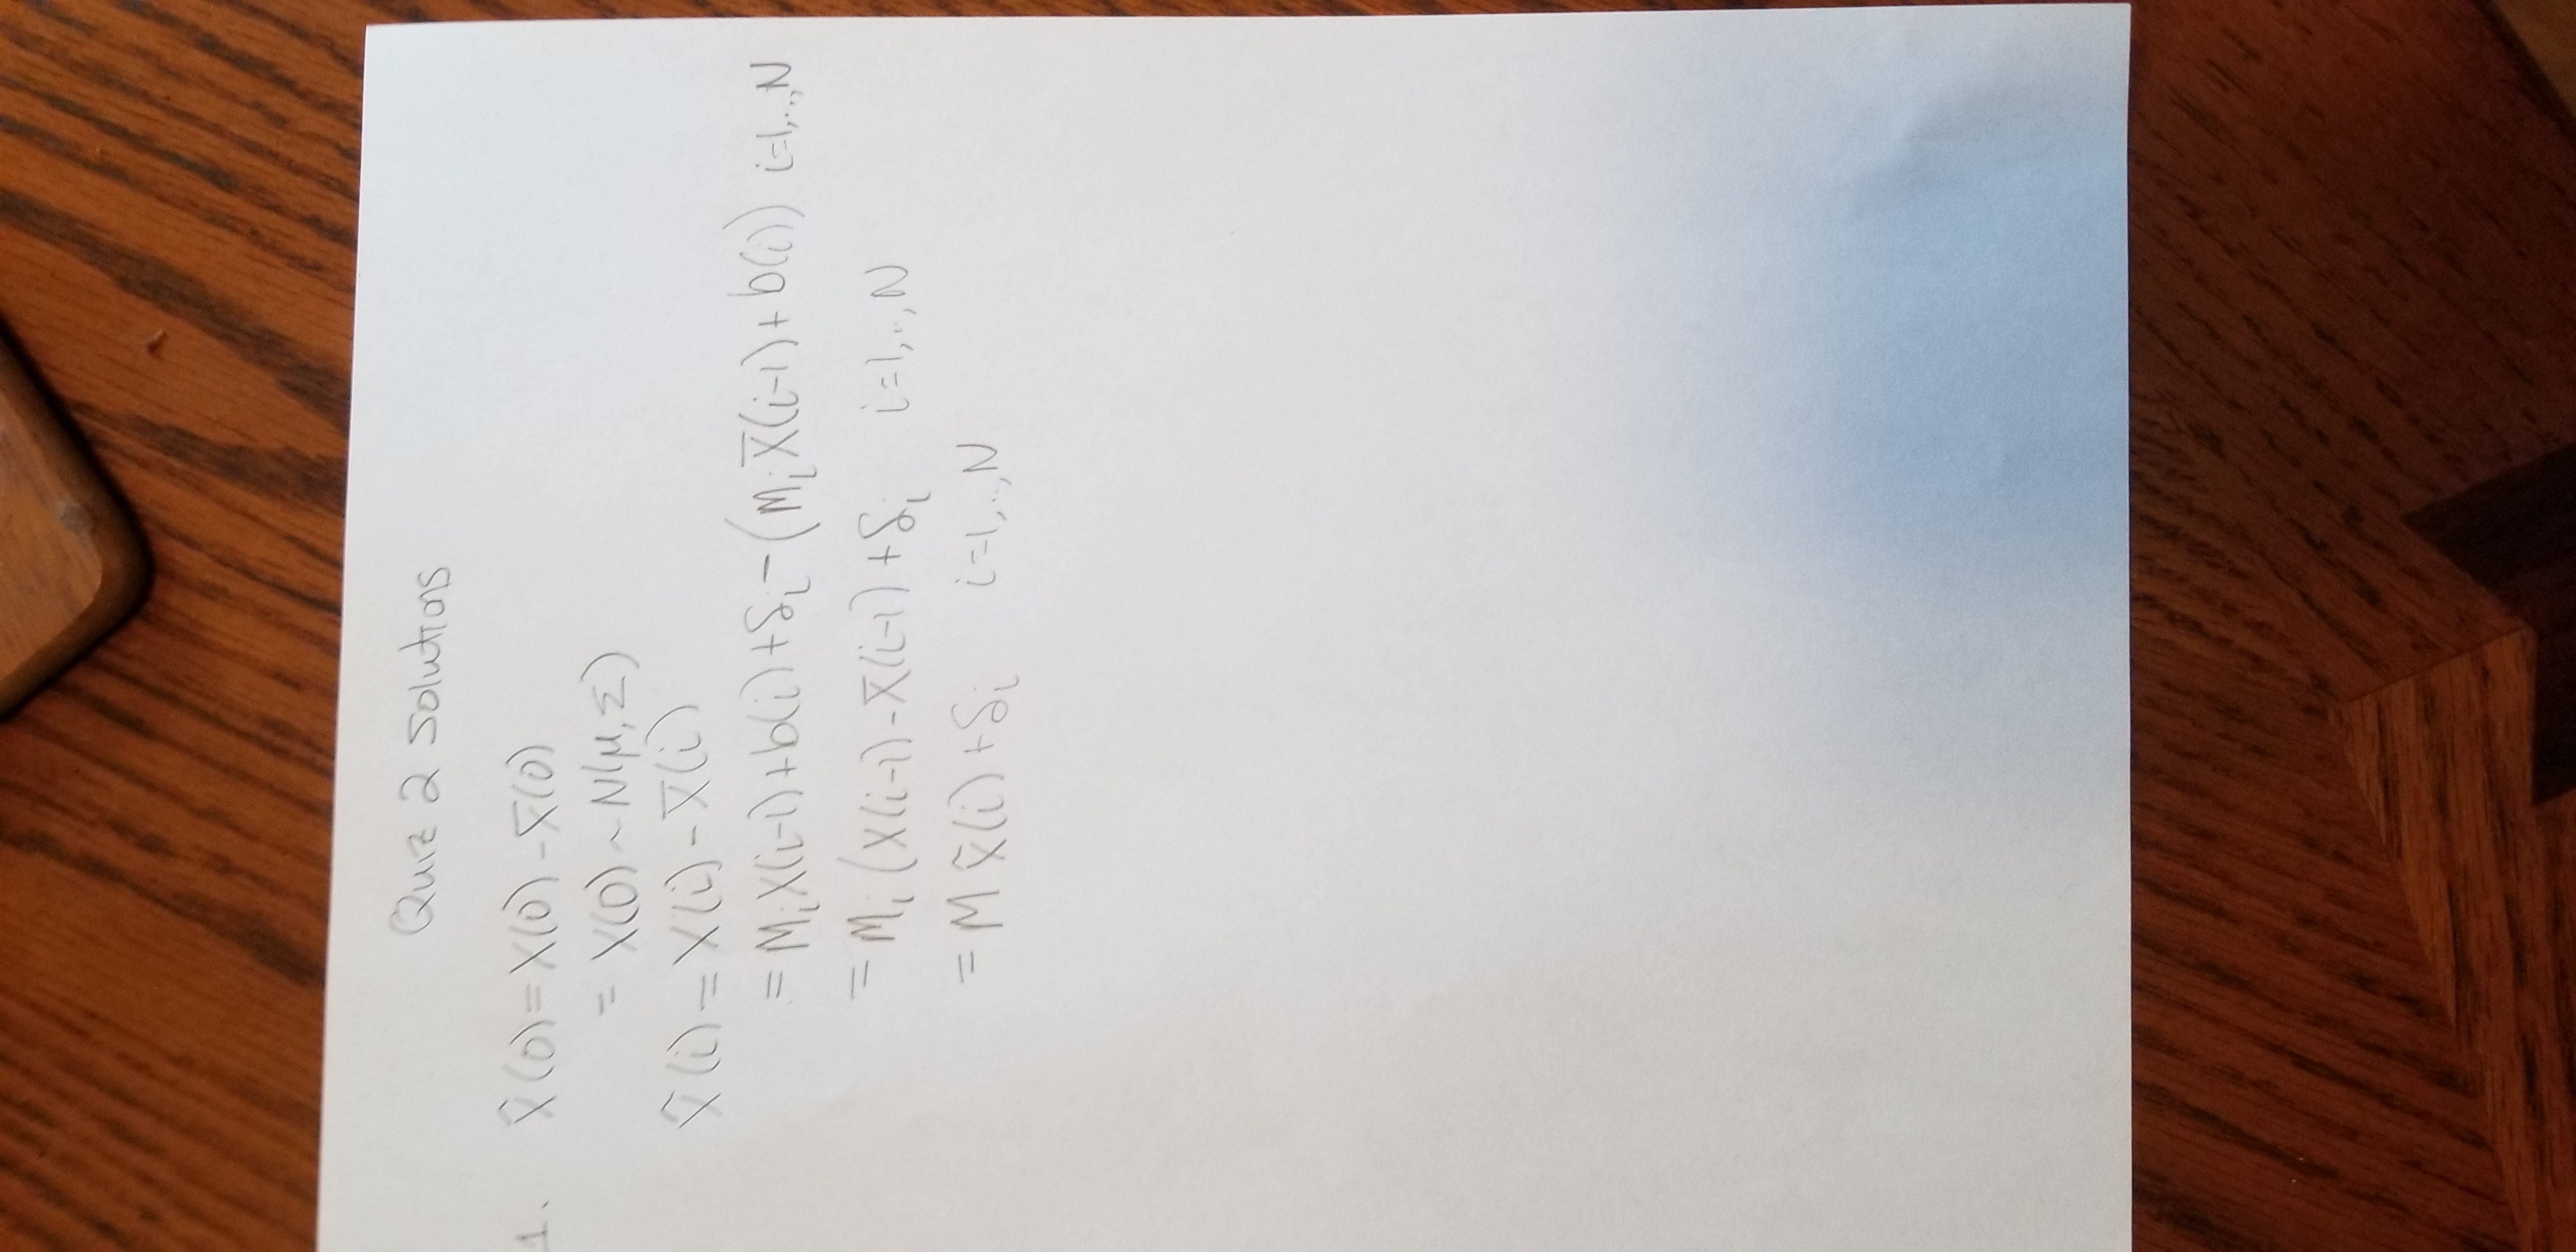 Quiz 2 Solutions
1. X̂(0) = X(0) - X̄(0)
= X(0) ~ N(μ, Σ)
X̂(i) = X(i) - X̄(i)
= MᵢX(i-1) + b(i) + δᵢ - (MᵢX̄(i-1) + b(i)) i=1,..,N
= Mᵢ (X(i-1) - X̄(i-1) + δᵢ i=1,..,N
= M x̂(i) + δᵢ i=1,..,N